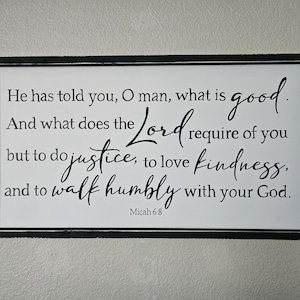 He has told you, O man, what is good.
And what does the Lord require of you
but to do justice, to love kindness,
and to walk humbly with your God.
Micah 6:8